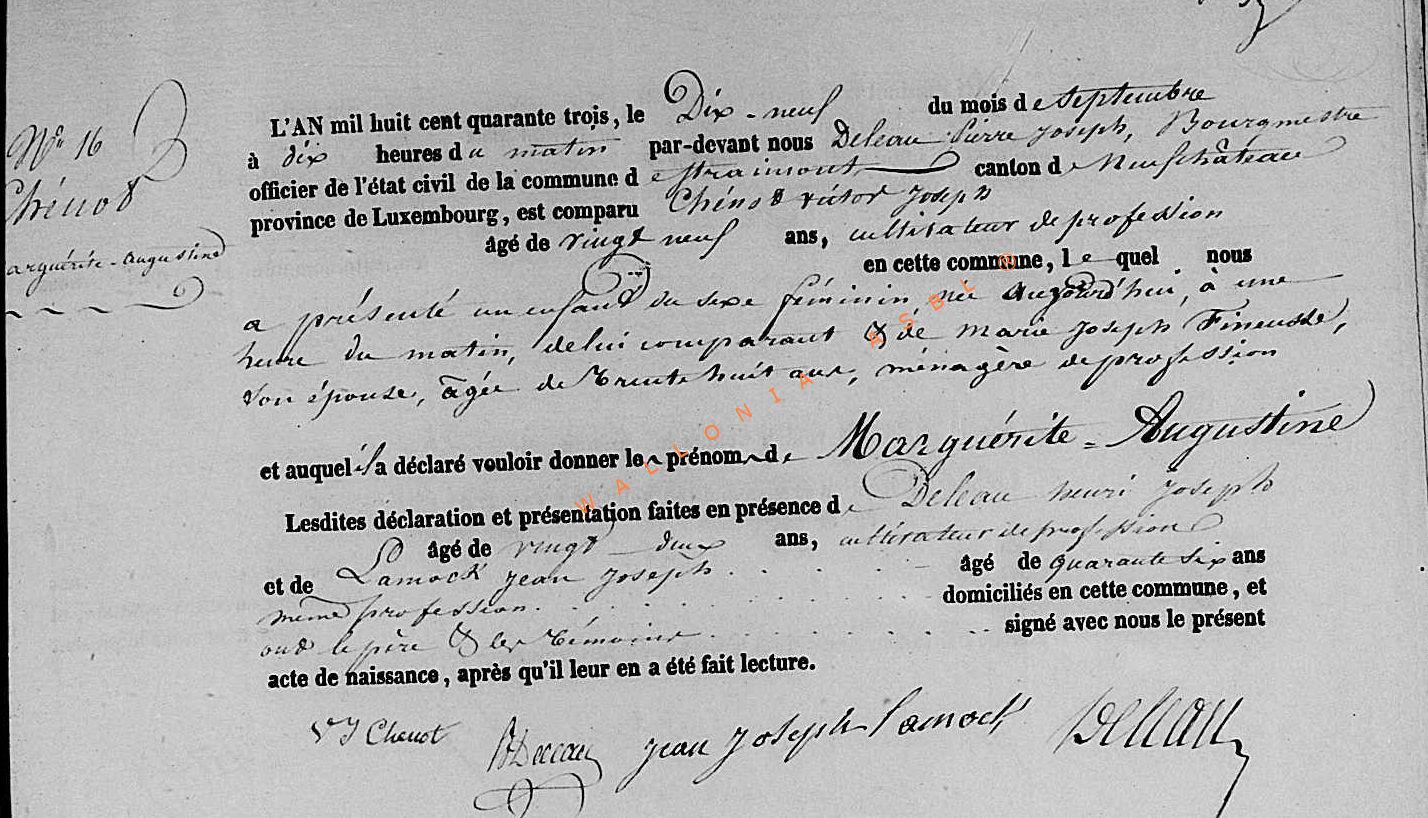 N° 16
Chénot
Marguérite-Augustine
L'AN mil huit cent quarante trois, le Dix-neuf du mois de septembre
à dix heures du matin par-devant nous Deleau Pierre Joseph, Bourgmestre
officier de l'état civil de la commune de straimont, canton de Neufchâteau
province de Luxembourg, est comparu Chénot victor Joseph
âgé de vingt neuf ans, cultivateur de profession
en cette commune, lequel nous
a présenté un enfant du sexe féminin, née aujourd'hui, à une
heure du matin, de lui comparant & de marie Joseph Fineusse,
son épouse, âgée de trente huit ans, ménagère de profession
et auquel il a déclaré vouloir donner les prénoms de Marguérite-Augustine
Lesdites déclaration et présentation faites en présence de Deleau henri Joseph
âgé de vingt-deux ans, cultivateur de profession
et de Lamock jean joseph âgé de quarante six ans
même profession. domiciliés en cette commune, et
ont le père & les témoins signé avec nous le présent
acte de naissance, après qu'il leur en a été fait lecture.
VJ Chenot Deleau jean joseph lamock Deleau
WALLONIA ASBL ©